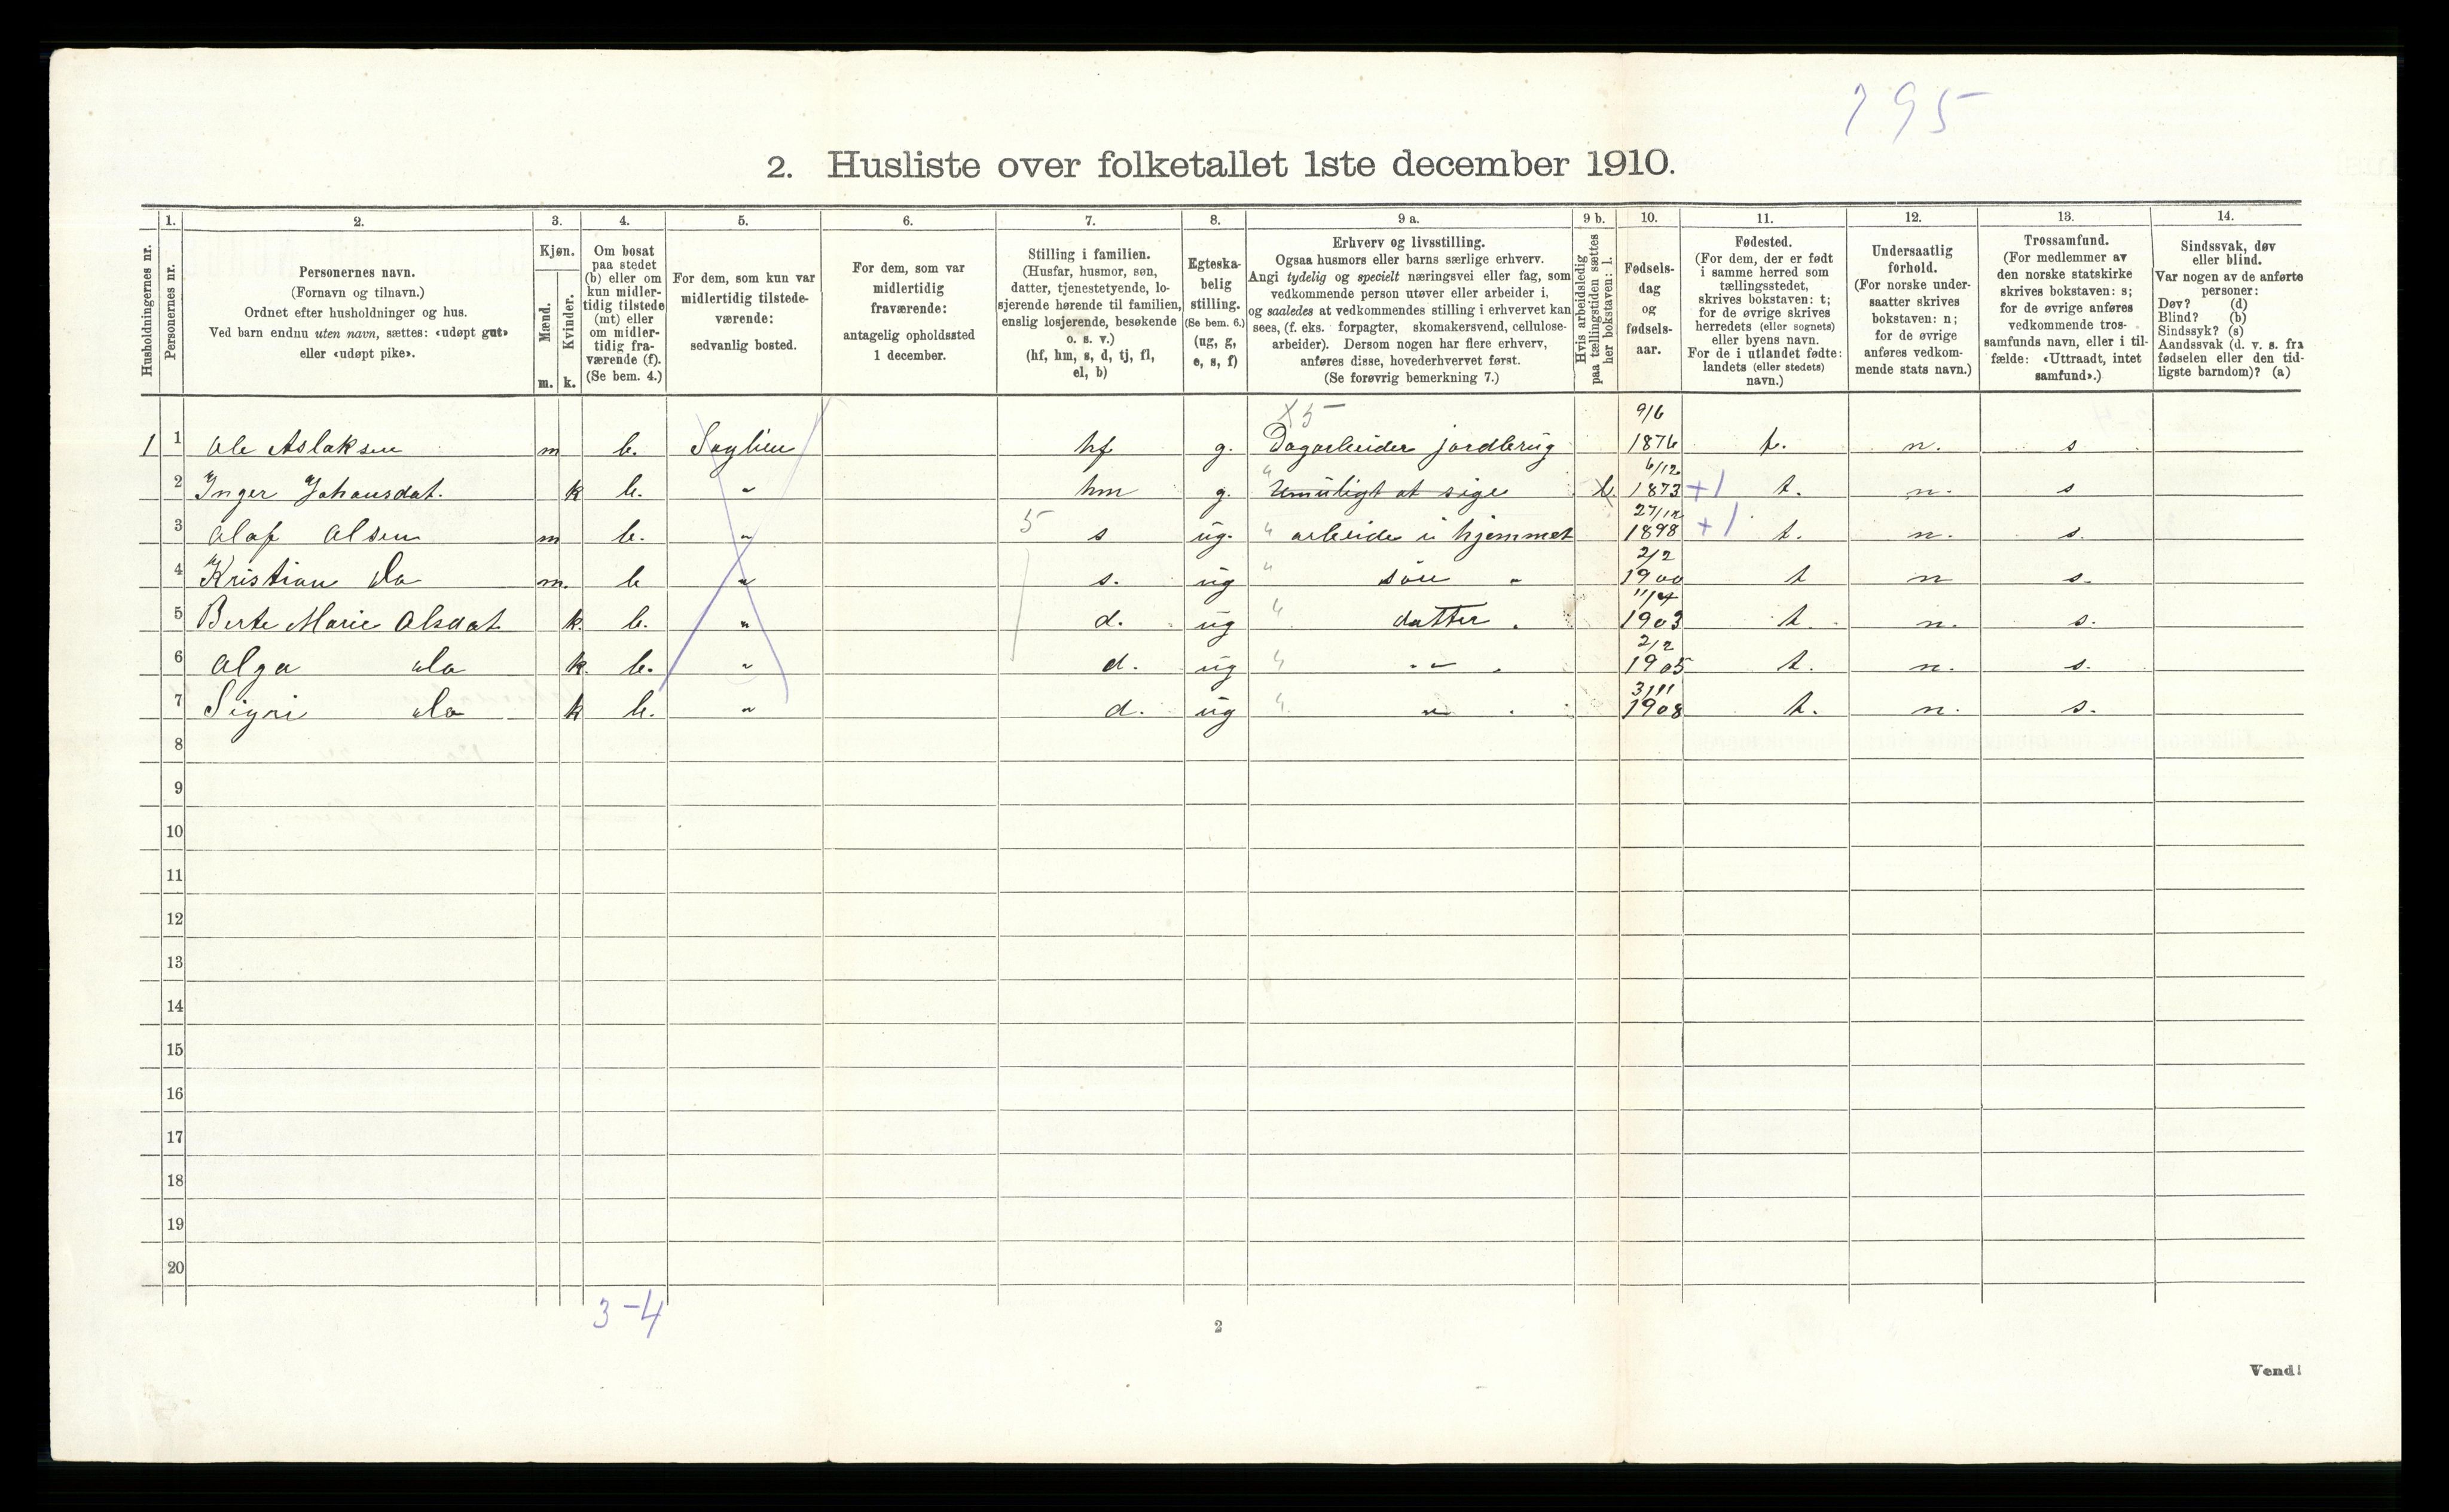 295
2. Husliste over folketallet 1ste december 1910.
Husholdningernes nr.
1.
Personernes nr.
2.
Personernes navn.
(Fornavn og tilnavn.)
Ordnet efter husholdninger og hus.
Ved barn endnu uten navn, sættes: «udøpt gut»
eller «udøpt pike».
3.
Kjøn.
Mænd.
Kvinder.
m. k.
4.
Om bosat
paa stedet
(b) eller om
kun midler-
tidig tilstede
(mt) eller
om midler-
tidig fra-
værende (f).
(Se bem. 4.)
5.
For dem, som kun var
midlertidig tilstede-
værende:
sedvanlig bosted.
6.
For dem, som var
midlertidig
fraværende:
antagelig opholdssted
1 december.
7.
Stilling i familien.
(Husfar, husmor, søn,
datter, tjenestetyende, lo-
sjerende hørende til familien,
enslig losjerende, besøkende
o. s. v.)
(hf, hm, s, d, tj, fl,
el, b)
8.
Egteska-
belig
stilling.
(Se bem. 6.)
(ug, g,
e, s, f)
9 a.
Erhverv og livsstilling.
Ogsaa husmors eller barns særlige erhverv.
Angi tydelig og specielt næringsvei eller fag, som
vedkommende person utøver eller arbeider i,
og saaledes at vedkommendes stilling i erhvervet kan
sees, (f. eks. forpagter, skomakersvend, cellulose-
arbeider). Dersom nogen har flere erhverv,
anføres disse, hovederhvervet først.
(Se forøvrig bemerkning 7.)
9 b.
Hvis arbeidsledig
paa tællingstiden sættes
her bokstaven: l.
10.
Fødsels-
dag
og
fødsels-
aar.
11.
Fødested.
(For dem, der er født
i samme herred som
tællingsstedet,
skrives bokstaven: t;
for de øvrige skrives
herredets (eller sognets)
eller byens navn.
For de i utlandet fødte:
landets (eller stedets)
navn.)
12.
Undersaatlig
forhold.
(For norske under-
saatter skrives
bokstaven: n;
for de øvrige
anføres vedkom-
mende stats navn.)
13.
Trossamfund.
(For medlemmer av
den norske statskirke
skrives bokstaven: s;
for de øvrige anføres
vedkommende tros-
samfunds navn, eller i til-
fælde: «Uttraadt, intet
samfund».)
14.
Sindssvak, døv
eller blind.
Var nogen av de anførte
personer:
Døv? (d)
Blind? (b)
Sindssyk? (s)
Aandssvak (d. v. s. fra
fødselen eller den tid-
ligste barndom)? (a)
X5
1 1 Ole Aslaksen m b. Saglien hf g. Dagarbeider jordbrug 9/6 1876 t. n. s
2 Inger Johansdat. k b. " hm g. " Umuligt at sige 6/12 1873 +1 t. n. s
3 Olaf Olsen m b. " 5 s ug. " arbeide i hjemmet 27/12 1898 +1 t. n. s.
4 Kristian do m. b " s. ug " søn " 2/2 1900 t n s.
5 Berte Marie Olsdat k. b. " d. ug " datter " 11/4 1903 t. n. s.
6 Olga do k. b. " d. ug " " " 2/2 1905 t. n. s.
7 Signe do k b. " d. ug " " " 3/11 1908 t. n. s.
8
9
10
11
12
13
14
15
16
17
18
19
20
3-4
2
Vend!